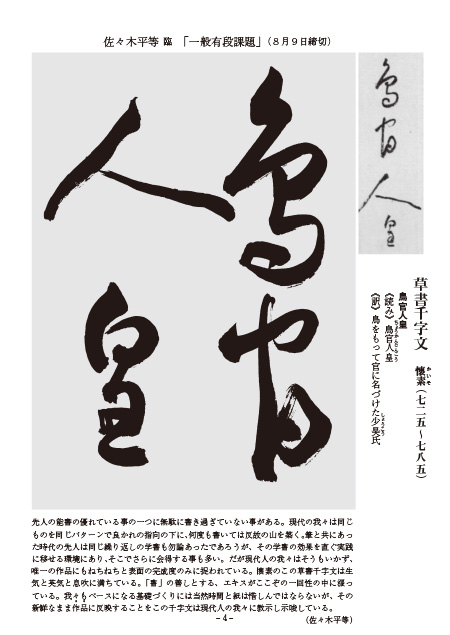 佐々木平等 臨 「一般有段課題」（８月９日締切）
鳥官
人皇
鳥官人皇
草書千字文 懐素（七二五〜七八五）
かいそ
鳥官人皇
《読み》鳥官人皇
ちょうかんじんこう
《訳》鳥をもって官に名づけた少昊氏
しょうこう
先人の能書の優れている事の一つに無駄に書き過ぎていない事がある。現代の我々は同じ
ものを同じパターンで良かれの指向の下に、何度も書いては反故の山を築く。筆と共にあっ
た時代の先人は同じ繰り返しの学書も勿論あったであろうが、その学書の効果を直ぐ実践
に移せる環境にあり、そこでさらに会得する事も多い。だが現代人の我々はそうもいかず、
唯一の作品にもねちねちと表面の完成度のみに捉われている。懐素のこの草書千字文は生
気と英気と息吹に満ちている。「書」の善しとする、エキスがこぞの一回性の中に漲っ
ている。我々もベースになる基礎づくりには当然時間と紙は惜しんではならないが、その
新鮮なまま作品に反映することをこの千字文は現代人の我々に教示し示唆している。
（佐々木平等）
－4－